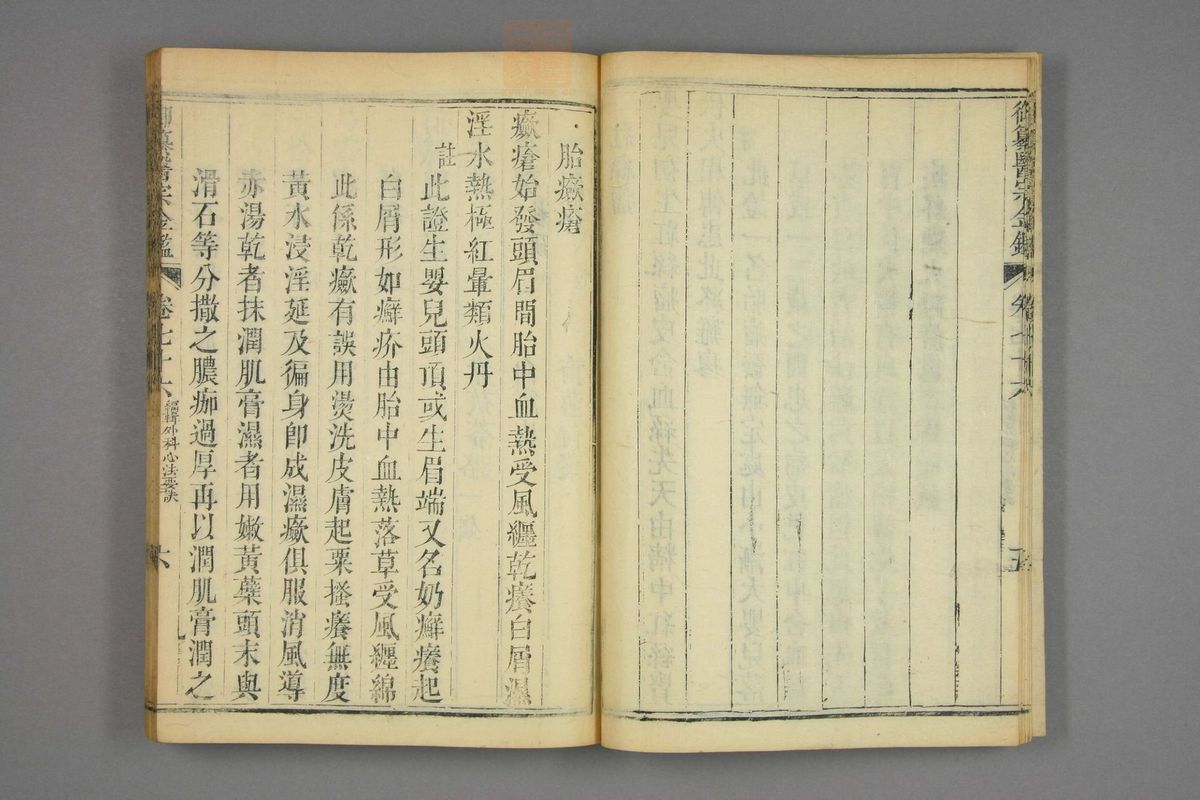 御纂醫宗金鑑 卷七十六 五
胎㿋瘡
㿋瘡始發頭眉間胎中血熱受風纏乾癢白屑濕
淫水熱極紅暈類火丹
註此證生嬰兒頭頂或生眉端又名奶癬癢起
白屑形如癬疥由胎中血熱落草受風纏綿
此係乾㿋有誤用燙洗皮膚起粟搔癢無度
黃水浸淫延及徧身即成濕㿋俱服消風導
赤湯乾者抹潤肌膏濕者用嫩黃蘗頭末與
滑石等分撒之膿痂過厚再以潤肌膏潤之
御纂醫宗金鑑 卷七十六 編輯外科心法要訣 六